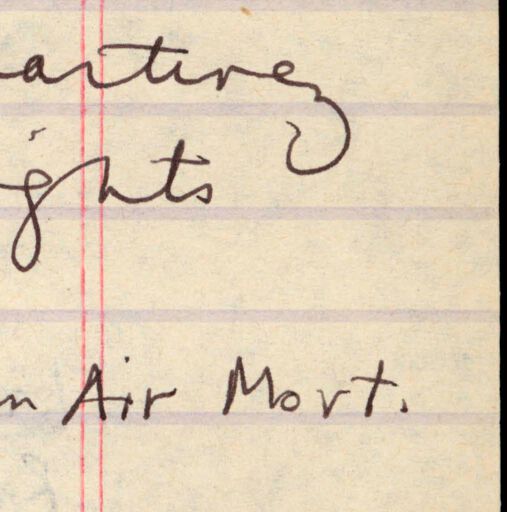 artinez
ghts
n Air Mort.